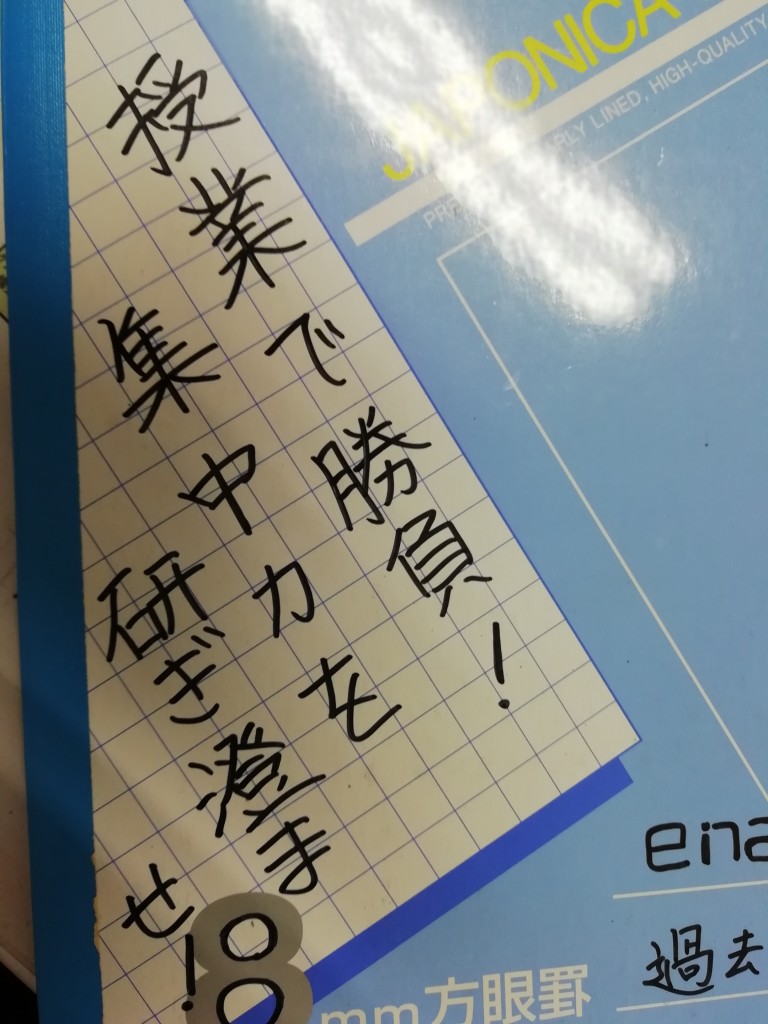 授業で勝負!
集中力を
研ぎ澄ませ!
JAPONICA
LINED, HIGH-QUALITY
8
mm方眼罫
ena
過去